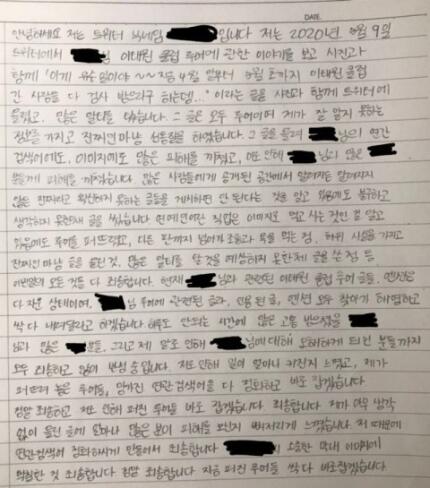 DATE.
안녕하세요 저는 트위터 닉네임 입니다 저는 2020년 5월 9일
트위터에서 님 이태원 클럽 루머에 관한 이야기를 보고 사진과
함께 "이게 무슨 일이야 ~~ 지금 4월 말부터 5월 초까지 이태원 클럽
간 사람들 다 검사 받으라구 하는데..." 이라는 글을 사진과 함께 트위터에
올렸고, 많은 알티를 탔습니다. 그 글은 모두 루머이며 제가 잘 알지 못하는
정보를 가지고 진짜인 마냥 선동질을 하였습니다. 그 글을 올려 님의 연관
검색어에도, 이미지에도 많은 피해를 끼쳤고, 이로 인해 님의 많은
분들께 피해를 끼쳤습니다. 많은 사람들에게 공개된 공간에서 알려지는
않은 진짜라고 확신하지 못하는 글들을 게시하면 안 된다는 것을 알고 있음에도 불구하고
생각하지 못한채 글을 썼습니다 연예인이란 직업은 이미지로 먹고 사는 것인 걸 알고
있음에도 루머를 퍼뜨렸고, 다른 판까지 넘어가 조롱과 욕을 먹는 점, 허위 사실을 가지고
진짜인 마냥 글을 올린 것, 많은 알티를 탈 것을 예상하지 못한채 글을 쓴 점 등
이 모든 것들 다 죄송합니다. 현재 님과 관련된 이태원 클럽 루머 글들, 멘션은
다 지운 상태이며, 님 루머에 관련된 글과, 인용된 글, 멘션 모두 찾아가 해명하고
싹 다 내려달라고 하겠습니다 하루도 안되는 시간에 많은 고통 받으셨을
님과 많은 분들, 그리고 제 글로 인해 님에 대해 오해하게 되신 분들까지
모두 죄송하고 깊이 반성 중입니다. 저로 인해 일이 얼마나 커진지 느꼈고, 제가
퍼뜨려 놓은 루머들, 망가진 연관검색어들 다 정화하고 바로 잡겠습니다
정말 죄송하고 저로 인해 퍼진 루머들 바로 잡겠습니다. 죄송합니다 제가 아무 생각
없이 올린 글에 얼마나 많은 분이 피해를 보신지 뼈저리게 느꼈습니다. 저 때문에
연관검색어 정화하시게 만들어서 죄송합니다 의 소중한 막내 이미지에
먹칠한 것 죄송합니다 정말 죄송합니다 지금 퍼진 루머들 싹 다 바로잡겠습니다